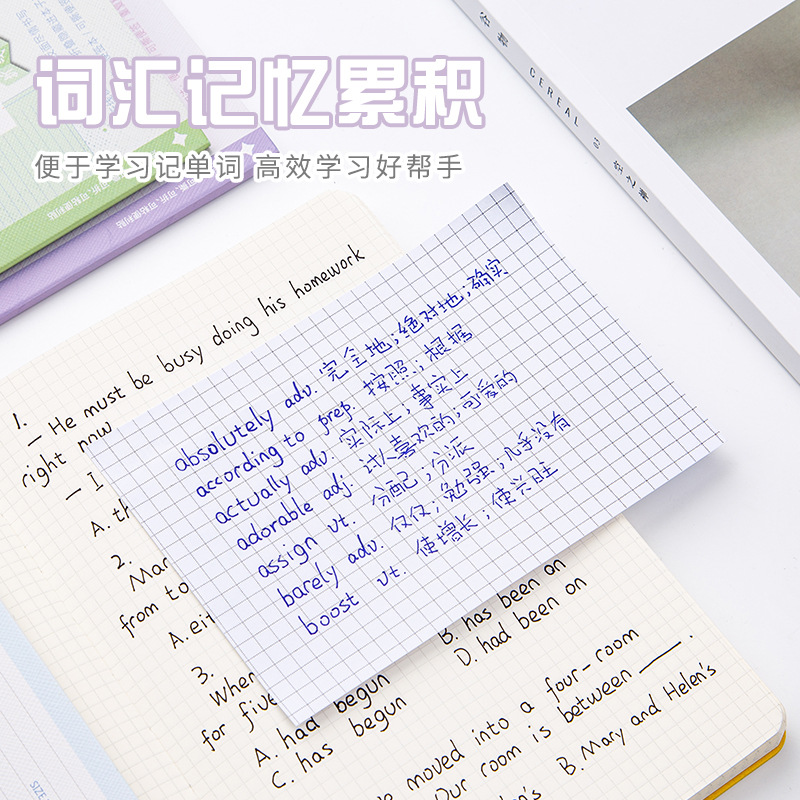 词汇记忆累积
便于学习记单词 高效学习好帮手
CEREAL
1.
— He must be busy doing his homework
right now
— I
A. th
absolutely adv. 完全地；绝对地；确实
according to prep. 按照；根据
actually adv. 实际上；事实上
adorable adj. 讨人喜欢的；可爱的
assign vt. 分配；分派
barely adv. 仅仅；勉强；几乎没有
boost vt. 使增长；使兴旺
2.
Mar
from to
A. eit
B. has been on
D. had been on
3.
When
for five
A. had begun
C. has begun
moved into a four-room
Our room is between ___.
Helen's B. Mary and Helen's
SIZE